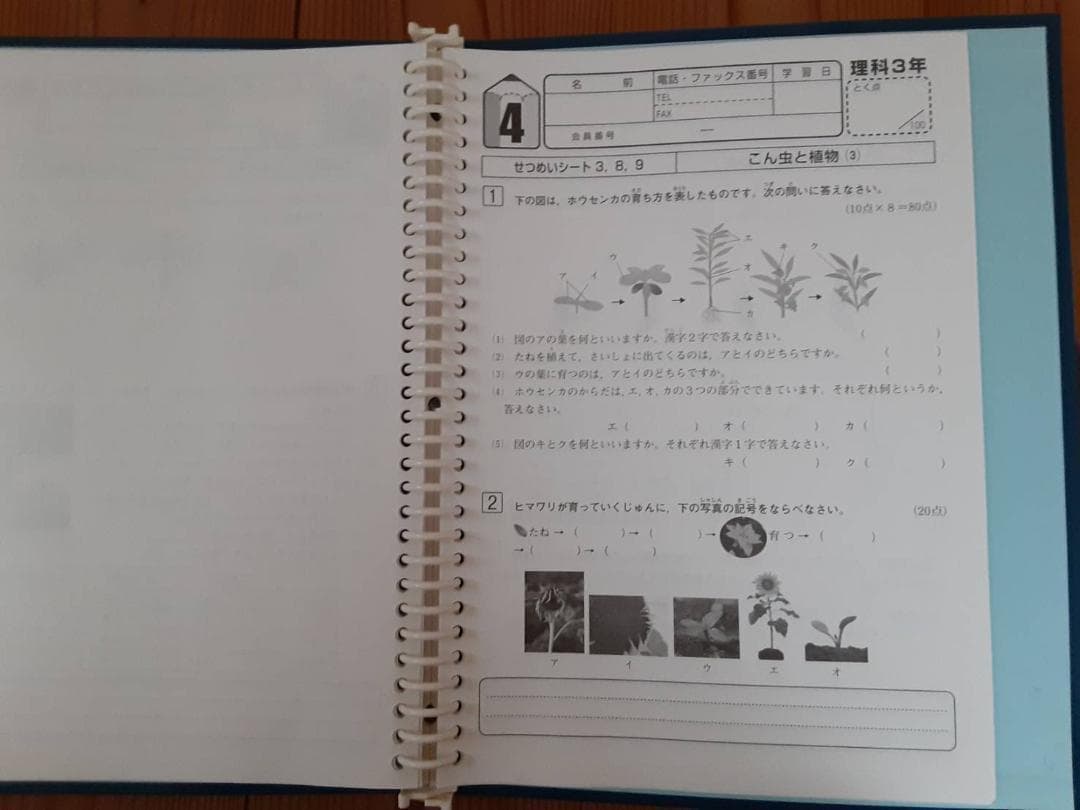 理科3年
4
名前
電話・ファックス番号
学習日
TEL
FAX
会員番号 ー
とく点
/100
せつめいシート3, 8, 9
こん虫と植物(3)
1 下の図は、ホウセンカの育ち方を表したものです。次の問いに答えなさい。
(10点×8=80点)
ア イ ウ エ オ カ キ ク
(1) 図のアの葉を何といいますか。漢字2字で答えなさい。 ( )
(2) たねを植えて、さいしょに出てくるのは、アとイのどちらですか。 ( )
(3) ウの葉に育つのは、アとイのどちらですか。 ( )
(4) ホウセンカのからだは、エ、オ、カの3つの部分でできています。それぞれ何というか、
答えなさい。
エ( ) オ( ) カ( )
(5) 図のキとクを何といいますか。それぞれ漢字1字で答えなさい。
キ( ) ク( )
2 ヒマワリが育っていくじゅんに、下の写真の記号をならべなさい。 (20点)
たね→( )→( )→ 育つ→( )
→( )→( )
ア イ ウ エ オ